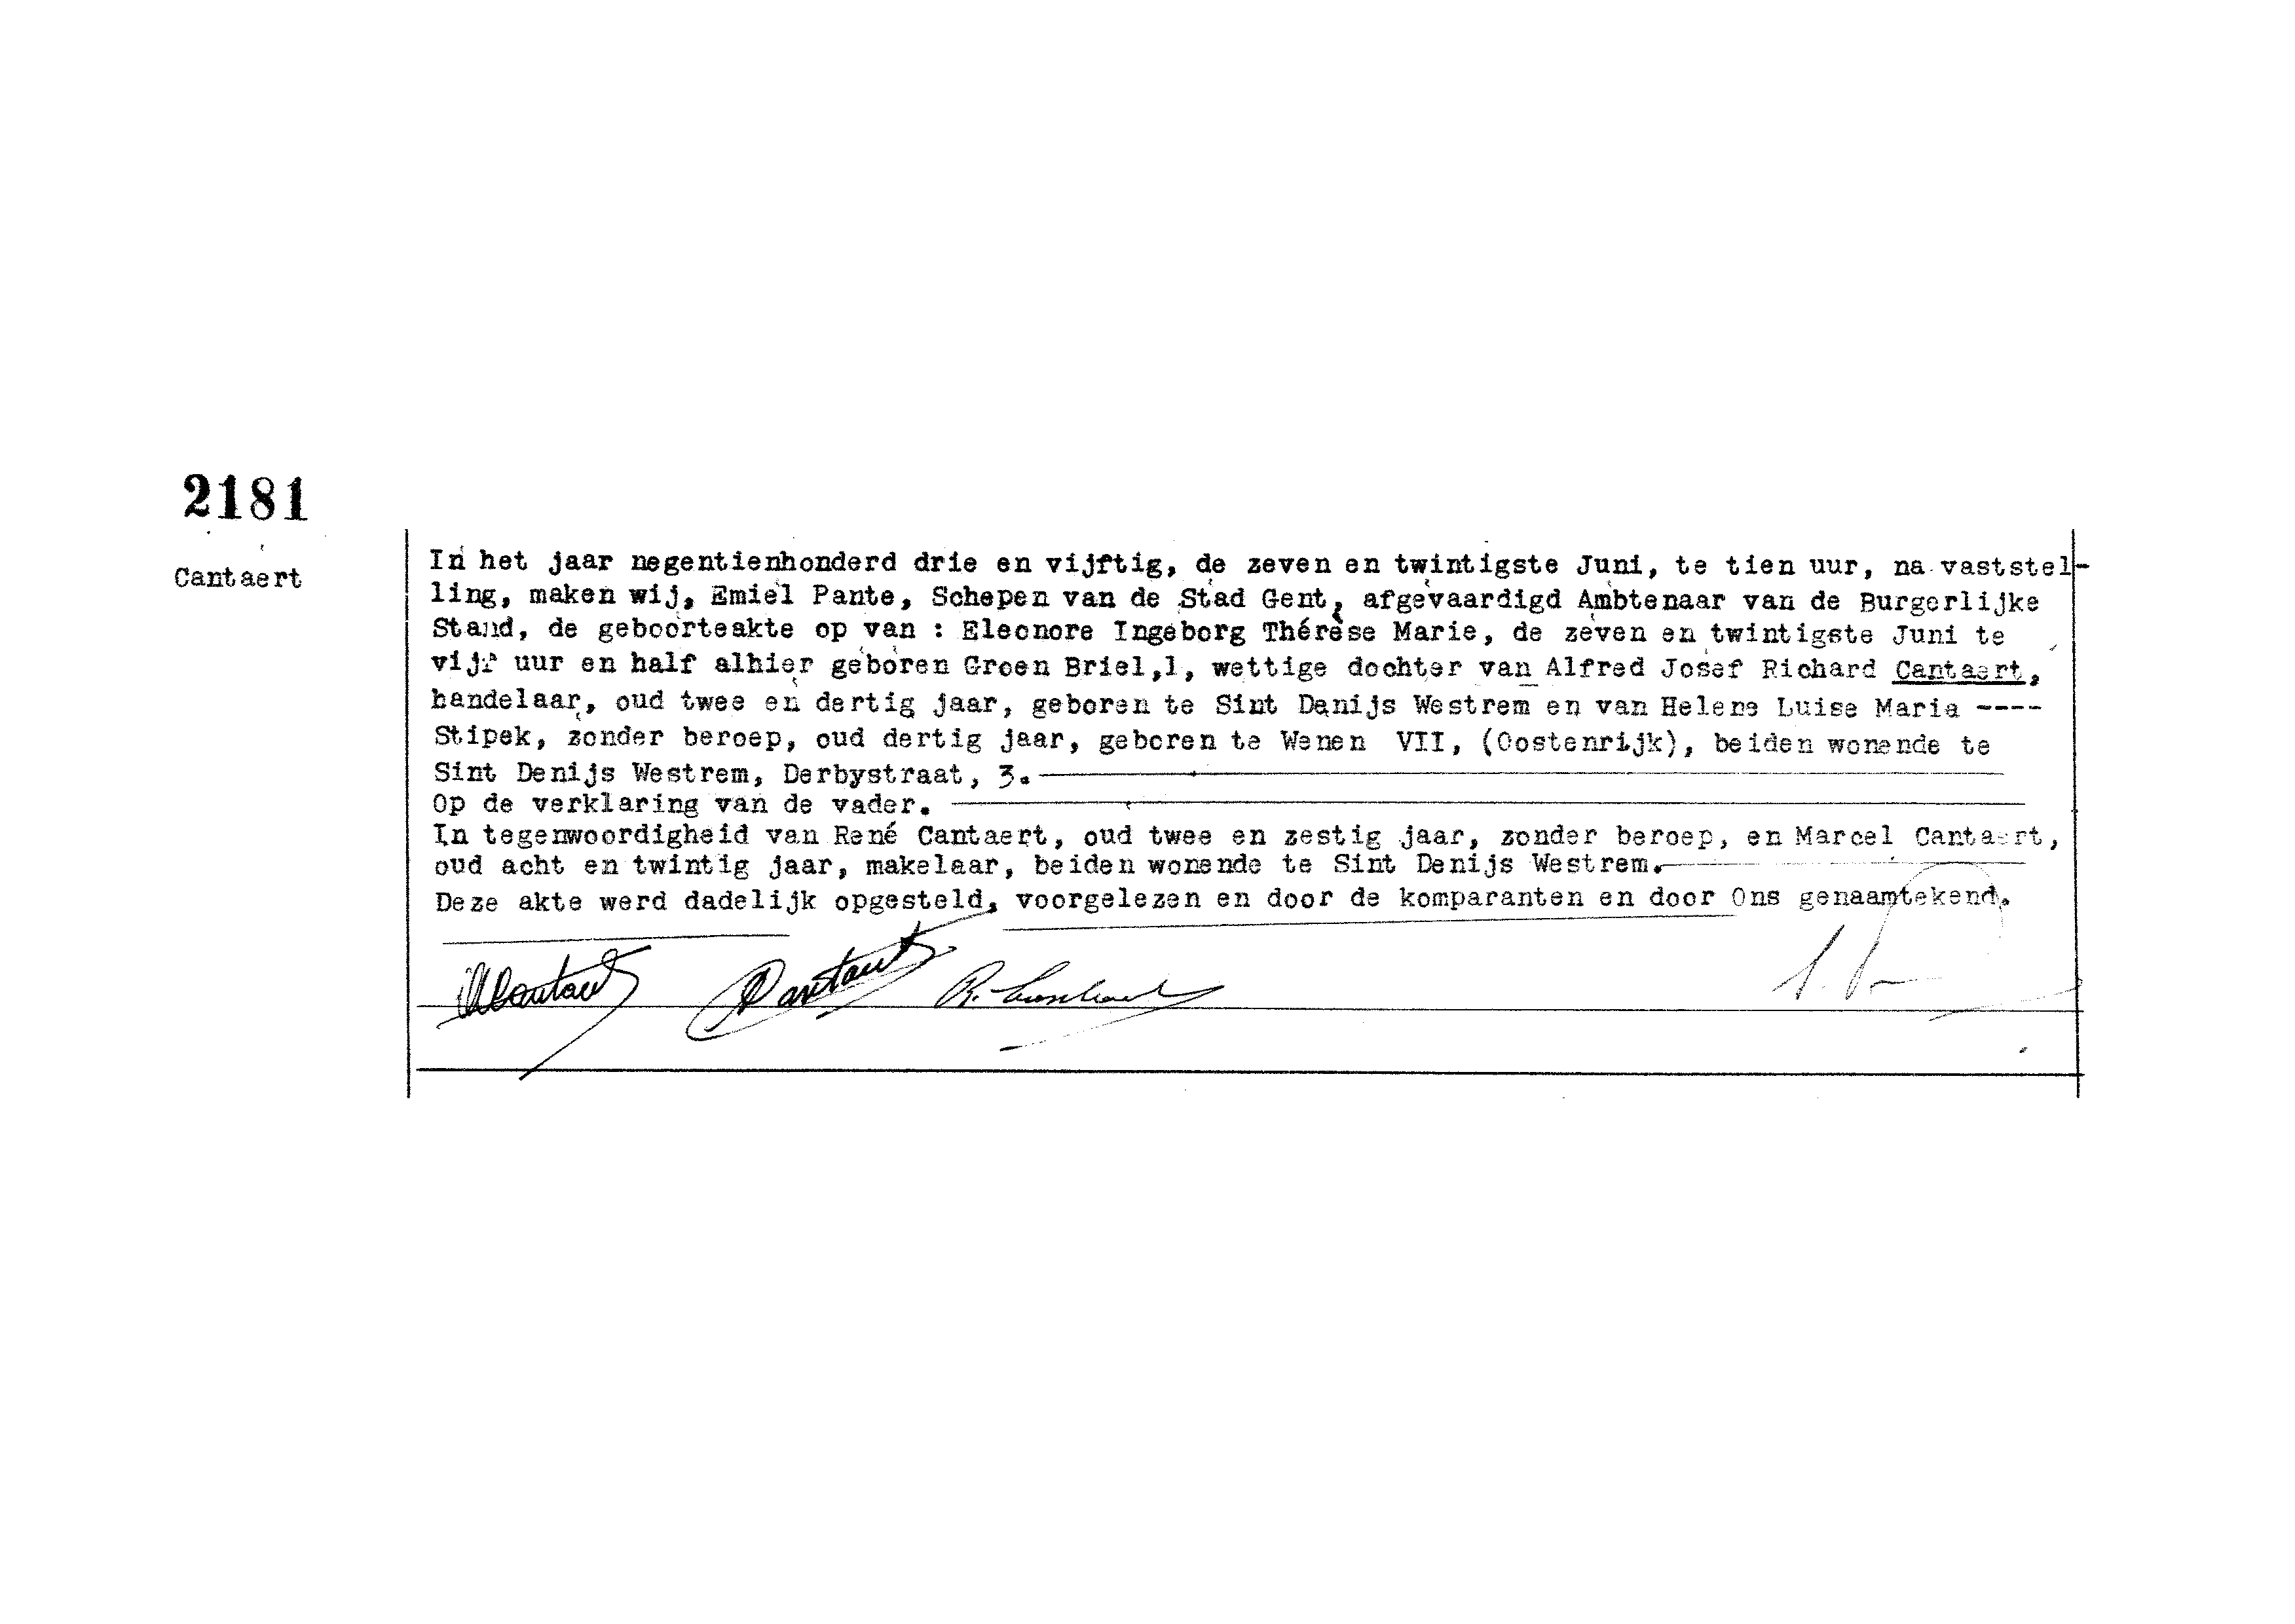 2181
Cantaert
In het jaar negentienhonderd drie en vijftig, de zeven en twintigste Juni, te tien uur, na vaststel-
ling, maken wij, Emiel Pante, Schepen van de Stad Gent, afgevaardigd Ambtenaar van de Burgerlijke
Stand, de geboorteakte op van : Eleonore Ingeborg Thérèse Marie, de zeven en twintigste Juni te
vijf uur en half alhier geboren Groen Briel,1, wettige dochter van Alfred Josef Richard Cantaert,
handelaar, oud twee en dertig jaar, geboren te Sint Denijs Westrem en van Helene Luise Maria ----
Stipek, zonder beroep, oud dertig jaar, geboren te Wenen VII, (Oostenrijk), beiden wonende te
Sint Denijs Westrem, Derbystraat, 3.
Op de verklaring van de vader.
In tegenwoordigheid van René Cantaert, oud twee en zestig jaar, zonder beroep, en Marcel Cantaert,
oud acht en twintig jaar, makelaar, beiden wonende te Sint Denijs Westrem.
Deze akte werd dadelijk opgesteld, voorgelezen en door de komparanten en door Ons genaamtekend.